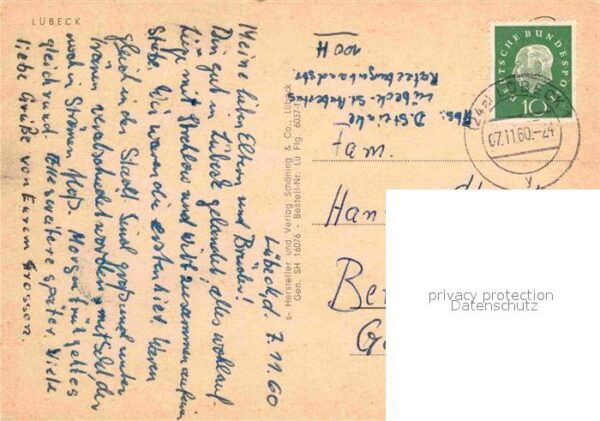 LÜBECK
Lübeck, d. 7.11.60
Meine lieben Eltern und Brüder!
Bin gut in Lübeck gelandet, alles wohlauf.
Liege mit und wir zusammen auf einer
Stube. Wir waren die ersten hier. Waren
gleich in der Stadt. Sind groß und unter
Tränen verabschiedet worden, mit der
noch in Strömen floß. Morgen früh geht es
gleich rund. Alles weitere später. Viele
liebe Grüße von Eurem Grossen.
s- Hersteller und Verlag Schöning & Co., Lübeck
Gen. SH 16076 - Bestell-Nr. Lü Flg 6037
Abs. D.
Lübeck-St. Hubertus
Ratzeburger Landstr.
100 H
DEUTSCHE BUNDESPOST
10
(24a) LÜBECK
07.11.60.-24
y
Fam.
Han
Ber
privacy protection
Datenschutz